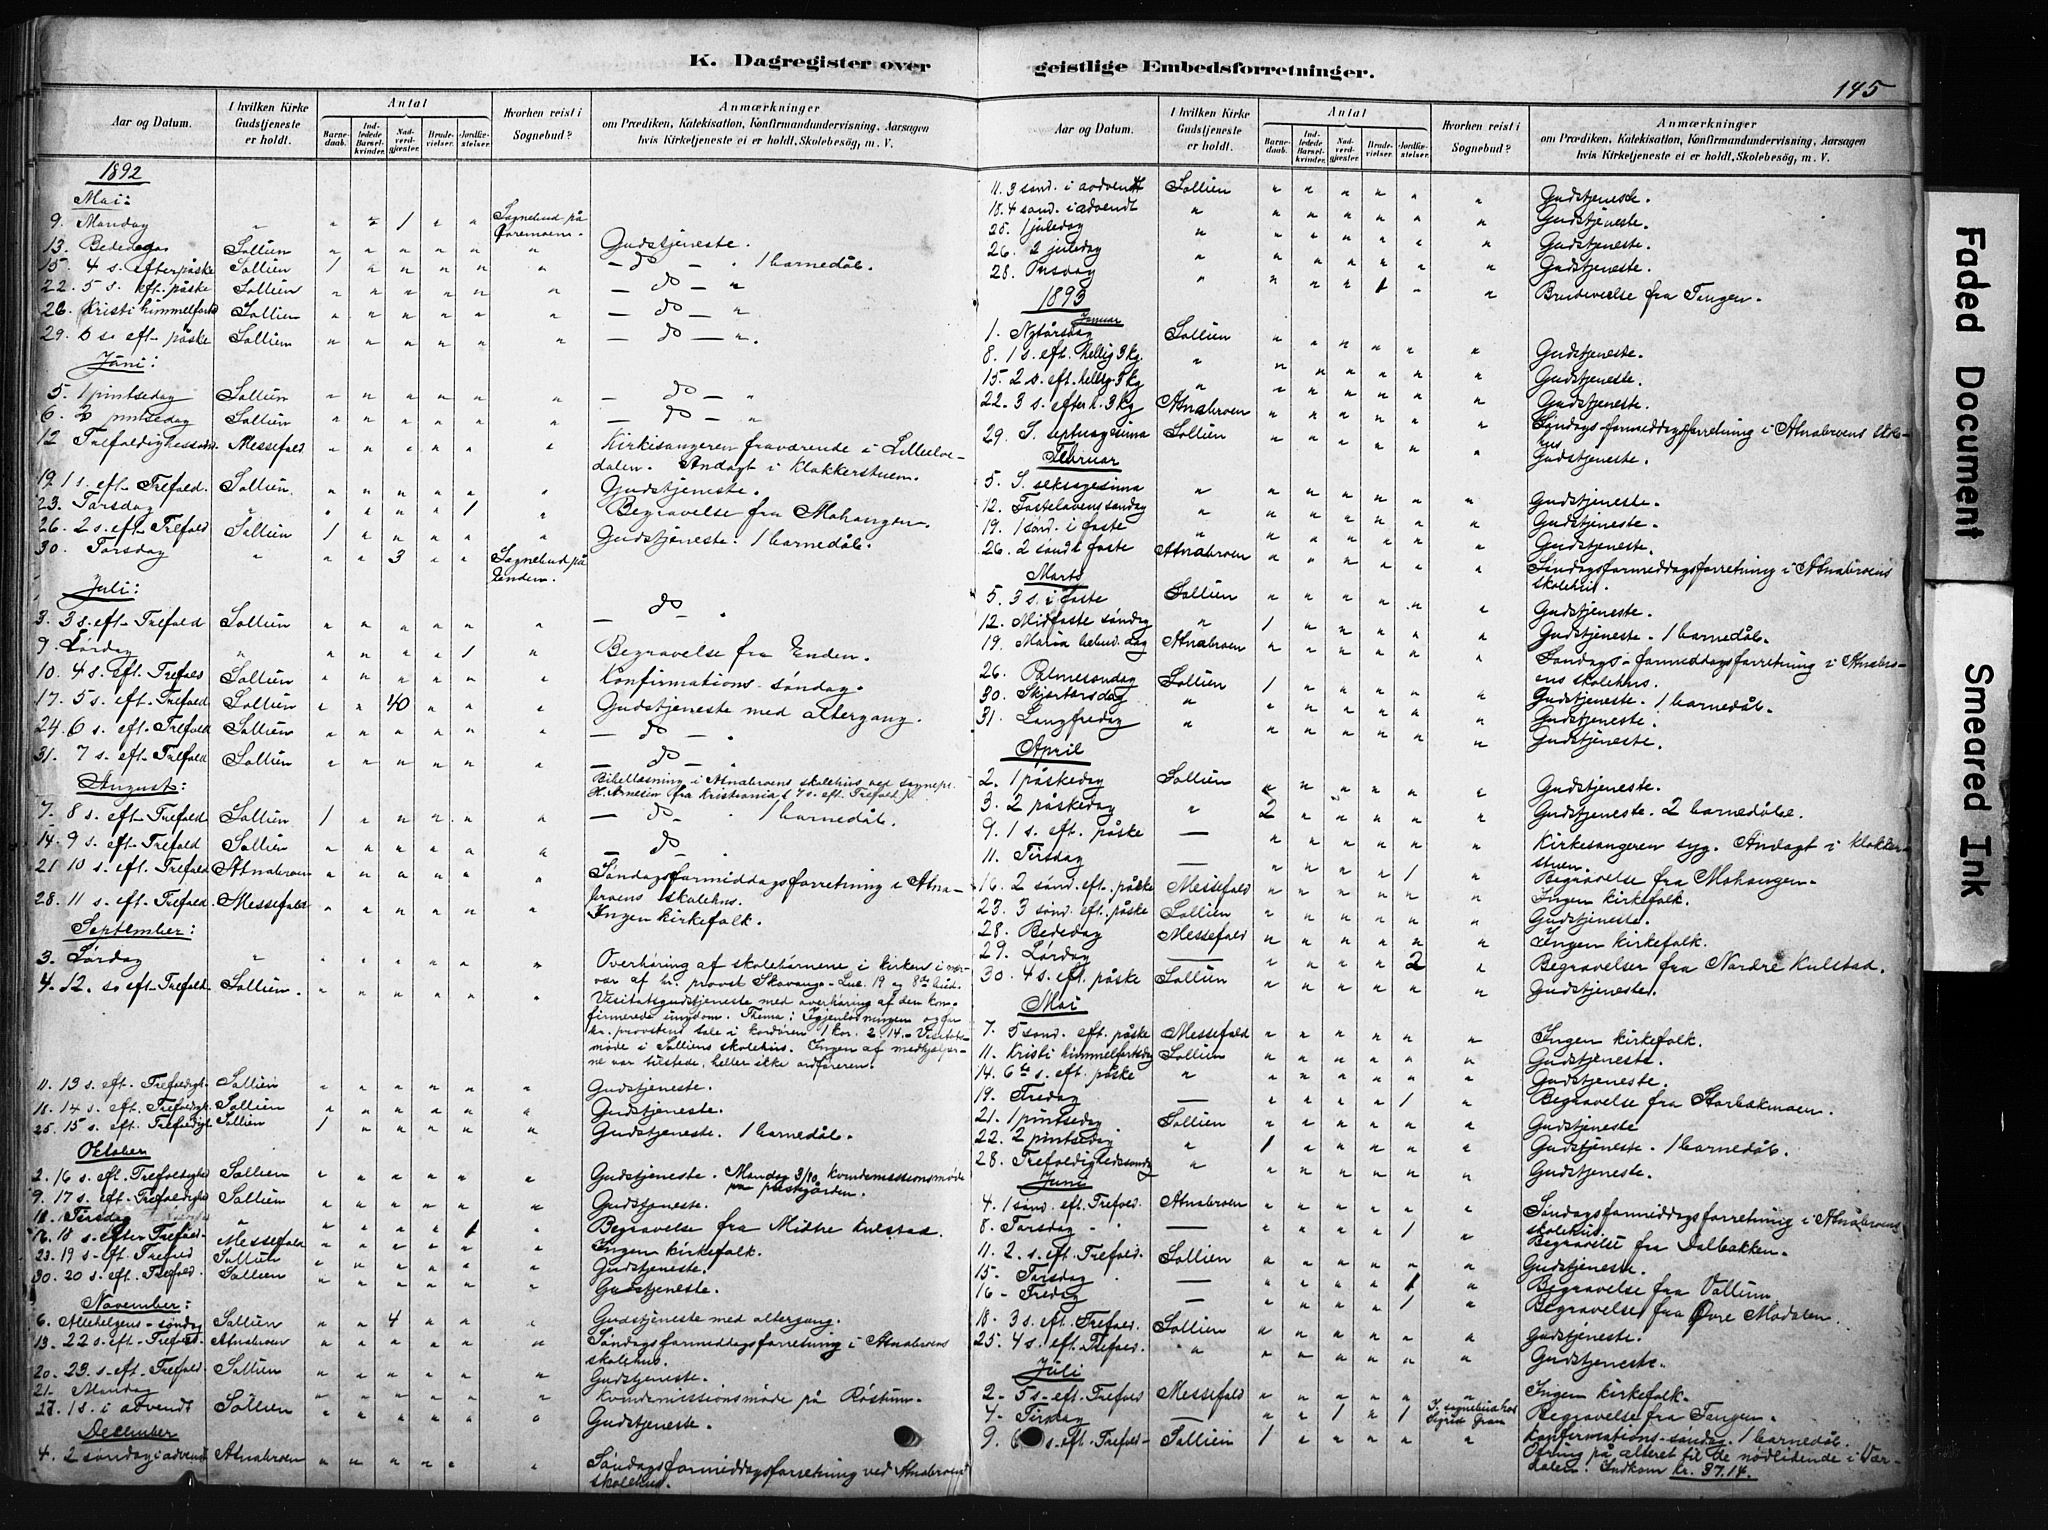 K. Dagregister over geistlige Embedsforretninger.
145
Aar og Datum.
I hvilken Kirke Gudstjeneste er holdt.
Antal
Barnedaab.
Indledede Barselkvinder.
Nadverdgjæster.
Brudevielser.
Jordfæstelser.
Hvorhen reist i Sognebud?
Anmærkninger
om Prædiken, Katekisation, Konfirmandundervisning, Aarsagen
hvis Kirketjeneste ei er holdt, Skolebesøg, m. V.
1892
Mai:
9. Mandag " " " 1 " " Sognebud på
13. Bededag Sollien " " " " " " Gudstjeneste.
15. 4 s. efter påske Sollien 1 " " " " " — do — " 1 barnedåb.
22. 5 s. eft. påske Sollien " " " " " " — do — "
26. Kristi himmelfartsd Sollien " " " " " " — do — "
29. 6 s. eft. påske Sollien " " " " " " — do — "
Juni:
5. 1 pintsedag Sollien " " " " " " — do — "
6. 2 pintsedag Sollien " " " " " " — do — "
12 Messefald " " " " " " Kirkesangeren fraværende i Lilleelve-
dalen. Andagt i klokkerstuen.
19. 1 s. eft. Trefold. Sollien " " " " " " Gudstjeneste.
23. Torsdag " " " " " 1 " Begravelse fra Mohaugen.
26. 2 s. eft. Trefold Sollien 1 " " " " " Gudstjeneste. 1 barnedåb.
30. Torsdag " " " 3 " " Sognebud på
Enden.
Juli:
3. 3 s. eft. Trefold Sollien " " " " " " — do — "
9. Lørdag " " " " " 1 " Begravelse fra Enden.
10. 4 s. eft. Trefold Sollien " " " " " " Konfirmations-søndag.
17. 5 s. eft. Trefold Sollien " " 40 " " " Gudstjeneste med altergang.
24. 6 s. eft. Trefold Sollien " " " " " " — do — "
31. 7 s. eft. Trefold Sollien " " " " " " — do — "
August:
Bibellæsning i Atnabroens skolehus ved sognepr.
fra Kristiania 7 s. eft. Trefold
7. 8 s. eft. Trefold Sollien 1 " " " " " — do — " 1 barnedåb.
14. 9 s. eft. Trefold Sollien " " " " " " — do — "
21 10 s. eft. Trefold Atnabroen " " " " " " Søndagsformiddagsforretning i Atna-
broens skolehus.
28. 11 s. eft. Trefold. Messefald " " " " " " Ingen kirkefolk.
September:
3. Lørdag " " " " " " " Overhøring af skolebørnene i kirken i nær-
vær af hr. provst Skavang - Luc. 19 og 8de bud.
4. 12. s. eft. Trefold. Sollien. " " " " " " Visitatsgudstjeneste med overhøring af den kon-
firmerede ungdom. Thema: Igjenløsningen og for
hr. provstens tale i kordøren 1 Kor. 2.14. - Visitats-
møde i Solliens skolehus. Ingen af medhjælper-
ne var tilstede, heller ikke ordføreren.
11. 13 s. eft. Trefoldigh. Sollien " " " " " " Gudstjeneste.
18. 14 s. eft. Trefoldigh. Sollien " " " " " " Gudstjeneste.
25. 15 s. eft. Trefoldigh Sollien 1 " " " " " Gudstjeneste. 1 barnedåb.
Oktober
2. 16 s. eft. Trefoldighd Sollien " " " " " " Gudstjeneste. Mandag 3/10 kvindemissionsmøde
på præstegården.
9. 17 s. eft. Trefoldighd Sollien " " " " " " Gudstjeneste.
Tirsdag " " " " " 1 " Begravelse fra Midtre Kulstad.
16. 18 s. efter Trefold. Messefald " " " " " " Ingen kirkefolk.
23. 19 s. eft. Trefold Sollien " " " " " " Gudstjeneste.
30. 20 s. eft. Trefold. Sollien " " " " " " Gudstjeneste.
November:
6. Allehelgens-søndag Sollien " " 4 " " " Gudstjeneste med altergang.
13. 22 s. eft. Trefold. Atnabroen " " " " " " Søndagsformiddagsforretning i Atnabroens
skolehus.
20. 23. s. eft. Trefold. Sollien " " " " " " Gudstjeneste.
21. Mandag " " " " " " Kvindemissionsmøde på Røstum.
27. 1 s. i advent Sollien " " " " " " Gudstjeneste.
December
4. 2 søndag i advent Atnabroen " " " " " " Søndagsformiddagsforretning ved Atnabroens
skolehus.
Aar og Datum.
I hvilken Kirke Gudstjeneste er holdt.
Antal
Barnedaab.
Indledede Barselkvinder.
Nadverdgjæster.
Brudevielser.
Jordfæstelser.
Hvorhen reist i Sognebud?
Anmærkninger
om Prædiken, Katekisation, Konfirmandundervisning, Aarsagen
hvis Kirketjeneste ei er holdt, Skolebesøg, m. V.
11. 3 sønd. i advent Sollien " " " " " " Gudstjeneste.
18. 4 sønd. i advent " " " " " " " Gudstjeneste.
25. 1 juledag " " " " " " " Gudstjeneste.
26. 2 juledag " " " " " " " Gudstjeneste.
28. Onsdag " " " " 1 " " Brudevielse fra Tangen.
1893
Januar
1. Nytårsdag Sollien " " " " " " Gudstjeneste.
8. 1 s. eft. hellig 3 kg. " " " " " " " Gudstjeneste.
15. 2 s. eft. hellig 3 kg " " " " " " " Gudstjeneste.
22. 3 s. efter h. 3 kg Atnabroen " " " " " " Søndags-formiddagsforretning i Atnabroens skole-
hus
29. S. septuagesima Sollien " " " " " " Gudstjeneste.
Februar
5. S. seksagesima " " " " " " " Gudstjeneste.
12. Fastelavenssøndag " " " " " " " Gudstjeneste.
19. 1 sønd. i faste " " " " " " " Gudstjeneste.
26. 2 sønd i faste Atnabroen " " " " " " Søndagsformiddagsforretning i Atnabroens
skolehus.
Marts
5. 3 s. i faste Sollien " " " " " " Gudstjeneste.
12. Midfaste søndag " 1 " " " " " Gudstjeneste. 1 barnedåb.
19. Maria bebud. dag Atnabroen " " " " " " Søndags-formiddagsforretning i Atnabro-
ens skolehus.
26. Palmesøndag Sollien 1 " " " " " Gudstjeneste. 1 barnedåb.
30. Skjærtorsdag " " " " " " " Gudstjeneste.
31. Langfredag " " " " " " " Gudstjeneste.
April
2. 1 påskedag Sollien " " " " " " Gudstjeneste.
3. 2 påskedag " 2 " " " " " Gudstjeneste. 2 barnedåbe.
9. 1 s. eft. påske — " " " " " " Kirkesangeren syg. Andagt i klokker-
stuen.
11. Tirsdag — " " " " 1 " Begravelse fra Mohaugen.
16. 2 sønd. eft. påske Messefald " " " " " " Ingen kirkefolk.
23. 3 sønd. eft. påske Sollien " " " " " " Gudstjeneste.
28. Bededag Messefald " " " " " " Ingen kirkefolk.
29. Lørdag — " " " " 2 " Begravelser fra Nordre Kulstad.
30. 4 s. eft. påske Sollien " " " " " " Gudstjeneste.
Mai
7. 5 sønd. eft. påske Messefald " " " " " " Ingen kirkefolk.
11. Kristi himmelfartsdag Sollien " " " " " " Gudstjeneste.
14. 6te s. eft. påske " " " " " " " Gudstjeneste.
19. Fredag — " " " " 1 " Begravelse fra Storbækmoen.
21. 1 pintsedag. Sollien " " " " " " Gudstjeneste
22. 2 pintsedag " 1 " " " " " Gudstjeneste. 1 barnedåb.
28. Trefoldighedssøndag " " " " " " " Gudstjeneste.
Juni
4. 1 sønd. eft. Trefold. Atnabroen " " " " " " Søndagsformiddagsforretning i Atnabroens
skolehus.
8. Torsdag — " " " " 1 " Begravelse fra Dalbakken.
11. 2. s. eft. Trefold. Sollien " " " " " " Gudstjeneste.
15. Torsdag — " " " " 1 " Begravelse fra Vollum.
16 - Fredag — " " " " 1 " Begravelse fra Øvre Modalen.
18. 3 s. eft. Trefold. Sollien " " " " " " Gudstjeneste.
25. 4 s. eft. Trefold. " " " " " " " Gudstjeneste.
Juli
2. 5 s. eft. Trefold Messefald " " " " " " Ingen kirkefolk.
4. Tirsdag — " " 1 " 1 I sognebud hos
Sigrid Begravelse fra Tangen.
9. 6 s. eft. Trefold. Sollien 1 " " " " " Konfirmations-søndag. 1 barnedåb.
Ofring på alteret til de nødlidende i Vær-
dalen. Indkom kr. 37.14.
Faded Document
Smeared Ink